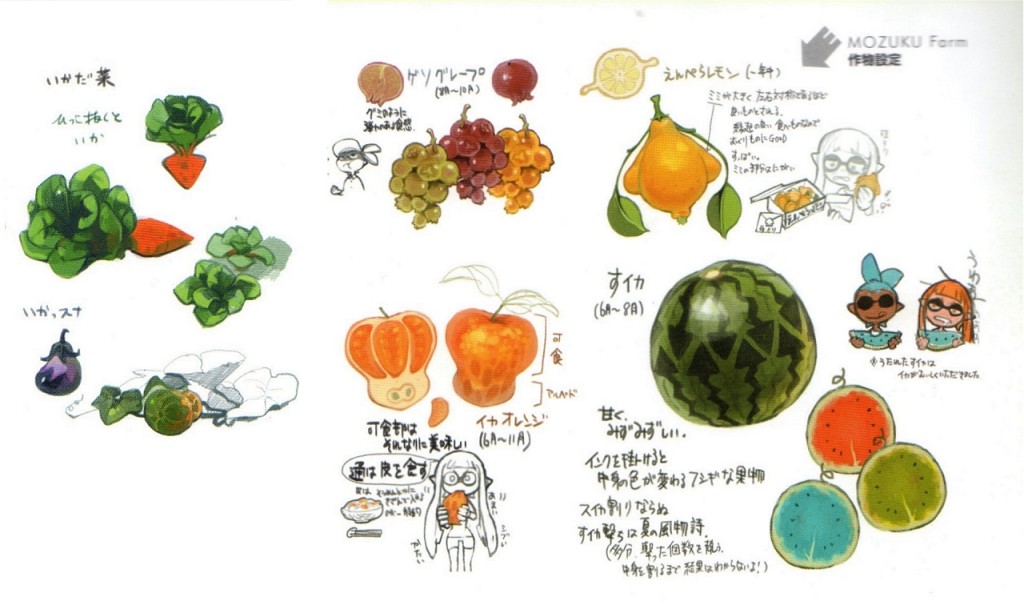 MOZUKU Farm
作物設定
いかだ菜
ひっこ抜くと
いか
いかっスナ
ゲソグレープ
(8月〜10月)
グミのように
弾力のある食感.
えんぺらレモン(一年中)
ミミが大きく左右対称であるほど
良いものとされる.
縁起の良い食べものなので
おくりものにGOOD
すっぱい.
ミミの部分はにがい
イカオレンジ
(6月〜11月)
可食
可食部は
それなりに美味しい
通は皮を食す
あまい
かたい
すイカ
(6月〜8月)
※うたれたすイカは
イカがおいしくいただきました
甘く、
みずみずしい.
インクを掛けると
中身の色が変わるフシギな果物
スイカ割りならぬ
すイカ撃ちは夏の風物詩.
(多分、撃った個数を競う.
中身を割るまで結果はわからないよ!)